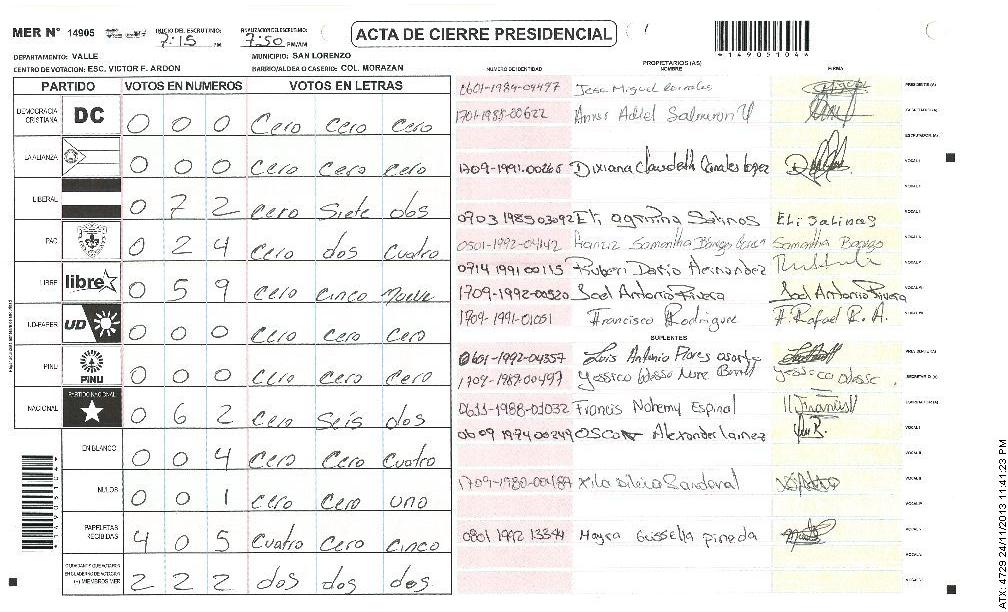 MER N° 14905 INICIO DEL ESCRUTINIO: 7:15 PM FINALIZACION DEL ESCRUTINIO: 7:50 PM/AM
ACTA DE CIERRE PRESIDENCIAL
1490510 4
DEPARTAMENTO: VALLE MUNICIPIO: SAN LORENZO
CENTRO DE VOTACION: ESC. VICTOR F. ARDON BARRIO/ALDEA O CASERIO: COL. MORAZAN
PARTIDO VOTOS EN NUMEROS VOTOS EN LETRAS
DEMOCRACIA CRISTIANA DC 0 0 0 Cero Cero Cero
LA ALIANZA 0 0 0 Cero Cero Cero
LIBERAL 0 7 2 Cero Siete dos
PAC 0 2 4 Cero dos Cuatro
LIBRE libre 0 5 9 Cero Cinco Nueve
UD-FAPER UD 0 0 0 Cero Cero Cero
PINU PINU 0 0 0 Cero Cero Cero
NACIONAL PARTIDO NACIONAL 0 6 2 Cero Seis dos
EN BLANCO 0 0 4 Cero Cero Cuatro
NULOS 0 0 1 Cero Cero uno
PAPELETAS RECIBIDAS 4 0 5 Cuatro Cero Cinco
(+) MIEMBROS MER 2 2 2 dos dos dos
PROPIETARIOS (AS)
NUMERO DE IDENTIDAD NOMBRE FIRMA
0601-1984-04497 Jose Miguel PRESIDENTE (A)
1701-1988-00622 SECRETARIO (A)
ESCRUTADOR (A)
1709-1991-00265 Dixiana Claudeth Canales lopez VOCAL I
0703 1985 03092 Eli Salinas Eli Salinas
0501-1992-04142 Samantha Samantha
0714 1991 00115 Ruben Dario Hernandez
1709-1992-00520 Joel Antonio Rivera Joel Antonio Rivera
1709-1991-01051 Francisco Rodriguez F. Rafael R. A.
SUPLENTES
0601-1992-04357 Luis Antonio Flores PRESIDENTE (A)
1709-1989-00497 Yessica Yessica SECRETARIO (A)
0611-1988-01032 Francis Nohemy Espinal ESCRUTADOR (A)
0609 1974 00249 OSCAR Alexander lainez VOCAL I
1709-1980-00489 Xila Silvia Sandoval
0801 1992 13344 Mayra Gussella pineda
ATX: 4729 24/11/2013 11:41:23 PM